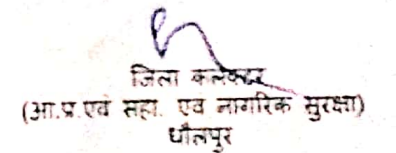 जिला कलेक्टर
(आ.प्र.एवं सहा. एवं नागरिक सुरक्षा)
धौलपुर